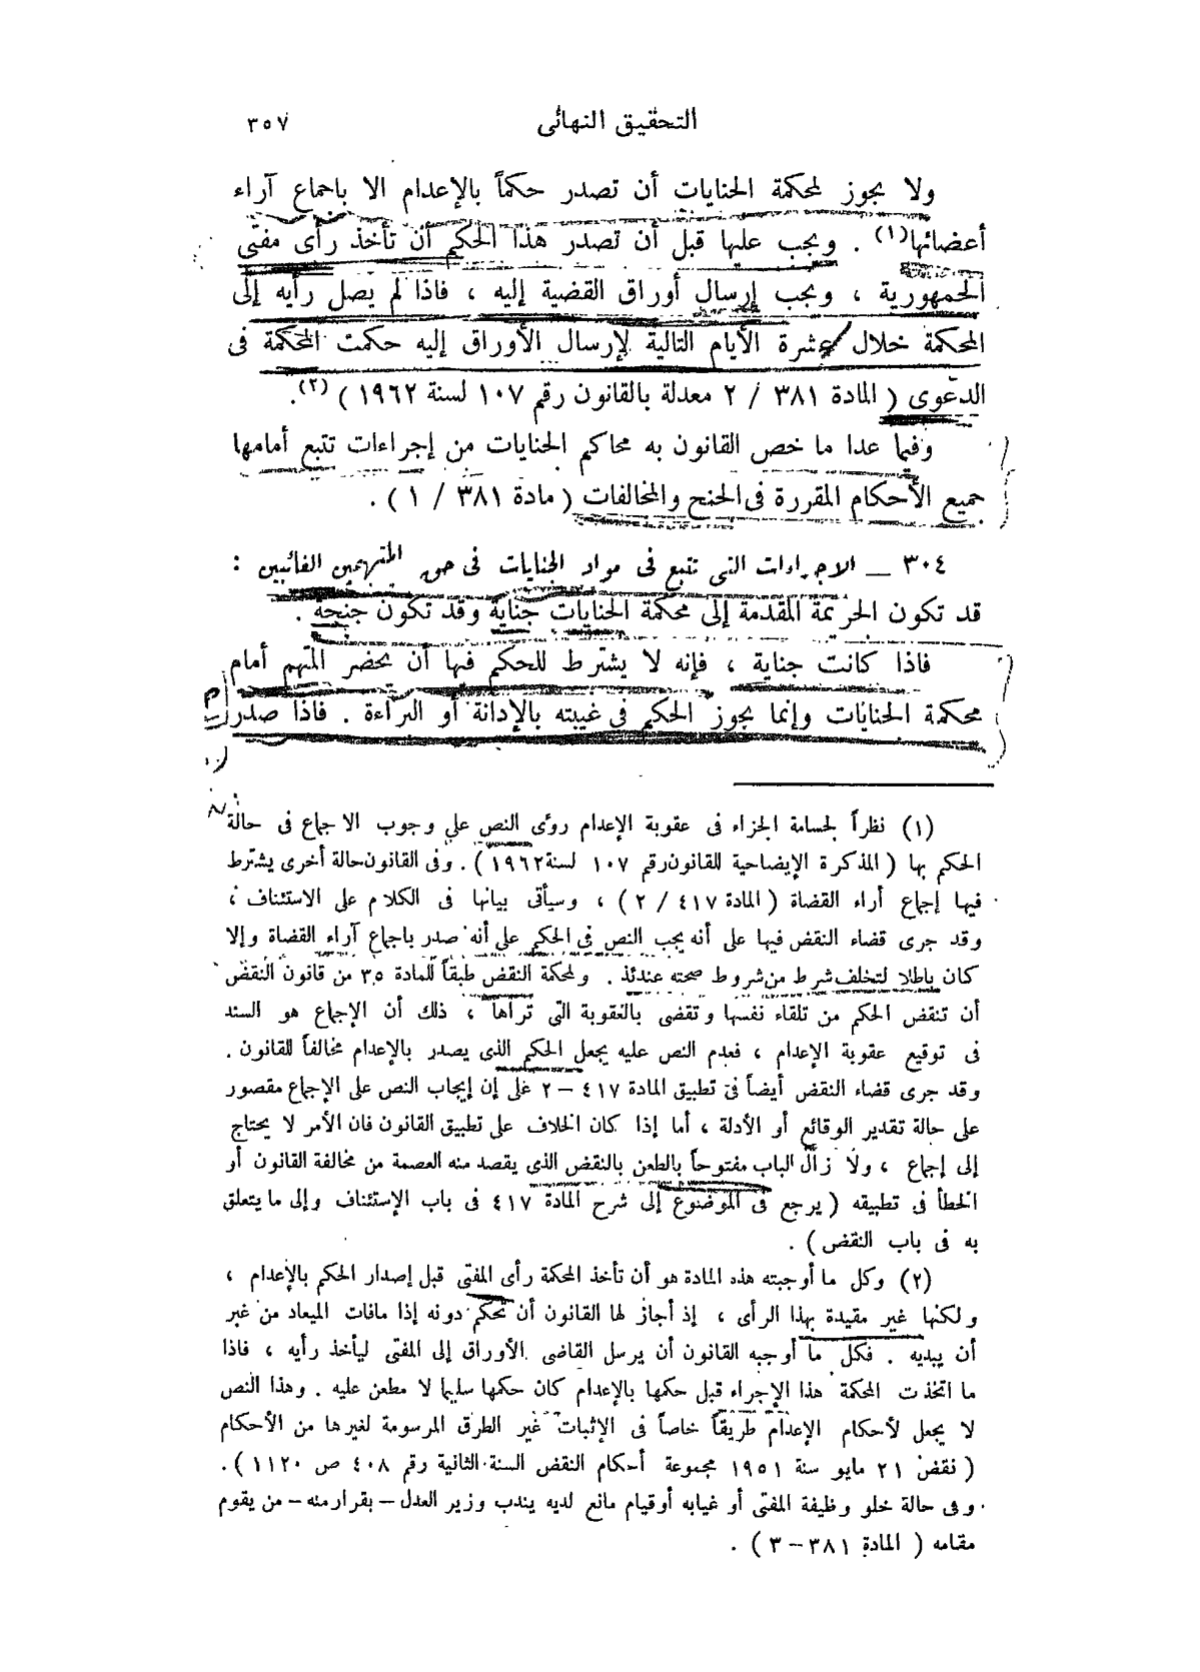 التحقيق النهائى
٣٥٧
ولا يجوز لمحكمة الجنايات أن تصدر حكماً بالإعدام الا باجماع آراء
أعضائها(١) . ويجب عليها قبل أن تصدر هذا الحكم أن تأخذ رأى مفتى
الجمهورية ، ويجب إرسال أوراق القضية إليه ، فاذا لم يصل رأيه إلى
المحكمة خلال عشرة الأيام التالية لإرسال الأوراق إليه حكمت المحكمة فى
الدعوى ( المادة ٣٨١ / ٢ معدلة بالقانون رقم ١٠٧ لسنة ١٩٦٢ ) (٢).
وفيما عدا ما خص القانون به محاكم الجنايات من إجراءات تتبع أمامها
جميع الأحكام المقررة فى الجنح والمخالفات ( مادة ٣٨١ / ١ ) .
٣٠٤ — الاجراءات التى تتبع فى مواد الجنايات فى حق المتهمين الغائبين :
قد تكون الجريمة المقدمة إلى محكمة الجنايات جناية وقد تكون جنحة .
فاذا كانت جناية ، فإنه لا يشترط للحكم فيها أن يحضر المتهم أمام
محكمة الجنايات وإنما يجوز الحكم فى غيبته بالإدانة أو البراءة . فاذا صدر
(١) نظراً لجسامة الجزاء فى عقوبة الإعدام روى النص على وجوب الاجماع فى حالة
الحكم بها ( المذكرة الإيضاحية للقانون رقم ١٠٧ لسنة ١٩٦٢ ) . وفى القانون حالة أخرى يشترط
فيها إجماع أراء القضاة ( المادة ٤١٧ / ٢ ) ، وسيأتى بيانها فى الكلام على الاستئناف ،
وقد جرى قضاء النقض فيها على أنه يجب النص فى الحكم على أنه صدر باجماع آراء القضاة وإلا
كان باطلا لتخلف شرط من شروط صحته عندئذ . ولمحكمة النقض طبقاً للمادة ٣٥ من قانون النقض
أن تنقض الحكم من تلقاء نفسها وتقضى بالعقوبة التى تراها ، ذلك أن الإجماع هو السند
فى توقيع عقوبة الإعدام ، فعدم النص عليه يجعل الحكم الذى يصدر بالإعدام مخالفاً للقانون .
وقد جرى قضاء النقض أيضاً فى تطبيق المادة ٤١٧ – ٢ على إن إيجاب النص على الإجماع مقصور
على حالة تقدير الوقائع أو الأدلة ، أما إذا كان الخلاف على تطبيق القانون فان الأمر لا يحتاج
إلى إجماع ، ولا زال الباب مفتوحاً بالطعن بالنقض الذى يقصد منه العصمة من مخالفة القانون أو
الخطأ فى تطبيقه ( يرجع فى الموضوع إلى شرح المادة ٤١٧ فى باب الإستئناف وإلى ما يتعلق
به فى باب النقض ) .
(٢) وكل ما أوجبته هذه المادة هو أن تأخذ المحكمة رأى المفتى قبل إصدار الحكم بالإعدام ،
ولكنها غير مقيدة بهذا الرأى ، إذ أجاز لها القانون أن تحكم دونه إذا مافات الميعاد من غير
أن يبديه . فكل ما أوجبه القانون أن يرسل القاضى الأوراق إلى المفتى ليأخذ رأيه ، فاذا
ما اتخذت المحكمة هذا الإجراء قبل حكمها بالإعدام كان حكمها سليما لا مطعن عليه . وهذا النص
لا يجعل لأحكام الإعدام طريقاً خاصاً فى الإثبات غير الطرق المرسومة لغيرها من الأحكام
( نقض ٢١ مايو سنة ١٩٥١ مجموعة أحكام النقض السنة الثانية رقم ٤٠٨ ص ١١٢٠ ) .
وفى حالة خلو وظيفة المفتى أو غيابه أوقيام مانع لديه يندب وزير العدل – بقرار منه – من يقوم
مقامه ( المادة ٣٨١ – ٣ ) .